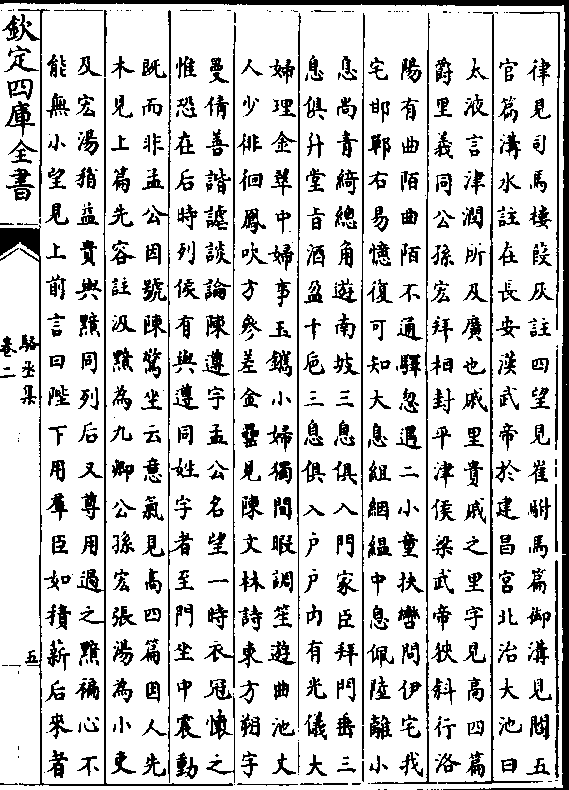 律見司馬樓葭灰註四望見崔駙馬篇御溝見閻五
官篇溝水註在長安漢武帝於建昌宮北治大池曰
太液言津潤所及廣也戚里貴戚之里字見高四篇
爵里義同公孫宏拜相封平津侯梁武帝狹斜行洛
陽有曲陌曲陌不通驛忽遇二小童扶轡問伊宅我
宅邯鄲右易憶復可知大息組絪縕中息佩陸離小
息尚青綺總角遊南坡三息俱入門家臣拜門垂三
息俱升堂旨酒盈十巵三息俱入戶戶內有光儀大
婦理金翠中婦事玉觿小婦獨閒暇調笙遊曲池丈
人少徘徊鳳吹方參差金罍見陳文林詩東方朔字
曼倩善諧謔談論陳遵字孟公名望一時衣冠懷之
惟恐在后時列侯有與遵同姓字者至門坐中震動
既而非孟公因號陳驚坐云意氣見高四篇因人先
木見上篇先容註汲黯為九卿公孫宏張湯為小吏
及宏湯稍益貴與黯同列后又尊用過之黯褊心不
能無小望見上前言曰陛下用羣臣如積薪后來者
欽定四庫全書
駱丞集
卷二
五